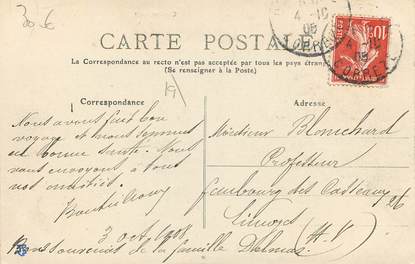 30-6
CARTE POSTALE
La Correspondance au recto n'est pas acceptée par tous les pays étran
(Se renseigner à la Poste)
Correspondance
Adresse
19
10
4 -10
08
Nous avons fait bon
voyage et nous sommes
en bonne santé. Nous
vous envoyons à tous
nos amitiés.
3 oct 1908
Bons souvenirs de la famille
Monsieur Blanchard
Professeur
faubourg des Casseaux 26
Limoges
(H. V)